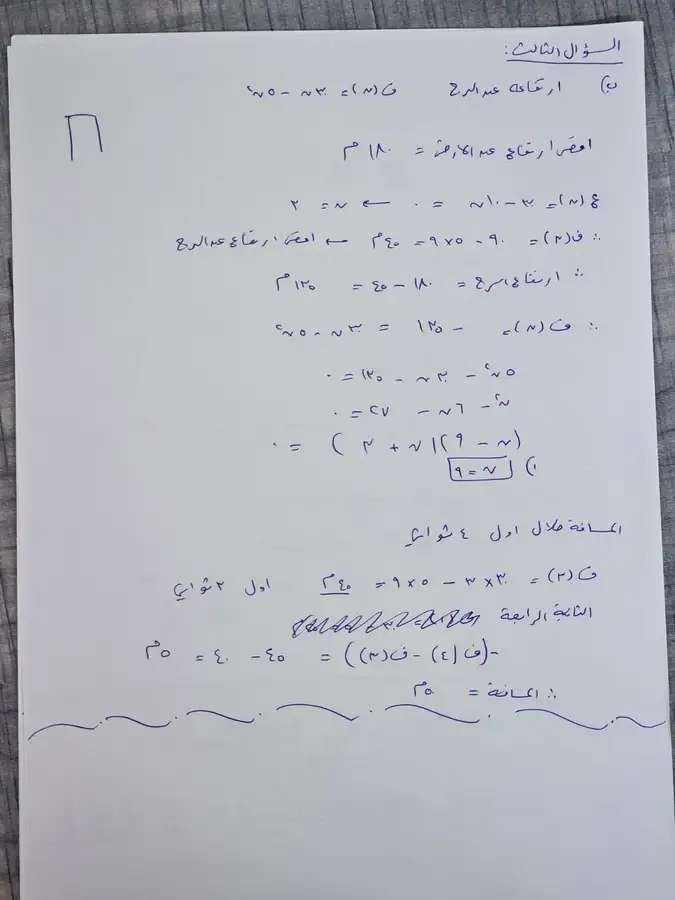 السؤال الثالث:
ب) ارتفاعه عن البرج ف(ن) = ٣٠ن - ٥ن²
اقصى ارتفاع عن الارض = ١٨٠ م
ع(ن) = ٣٠ - ١٠ن = ٠ ← ن = ٣
∴ ف(٣) = ٩٠ - ٥×٩ = ٤٥ م ← اقصى ارتفاع عن البرج
∴ ارتفاع البرج = ١٨٠ - ٤٥ = ١٣٥ م
∴ ف(ن) = -١٣٥ = ٣٠ن - ٥ن²
٥ن² - ٣٠ن - ١٣٥ = ٠
ن² - ٦ن - ٢٧ = ٠
(ن - ٩)(ن + ٣) = ٠
١) ن = ٩
المسافة خلال اول ٤ ثواني
ف(٣) = ٣٠×٣ - ٥×٩ = ٤٥ م اول ٣ ثواني
الثانية الرابعة
-(ف(٤) - ف(٣)) = ٤٥ - ٤٠ = ٥ م
∴ المسافة = ٥٠ م